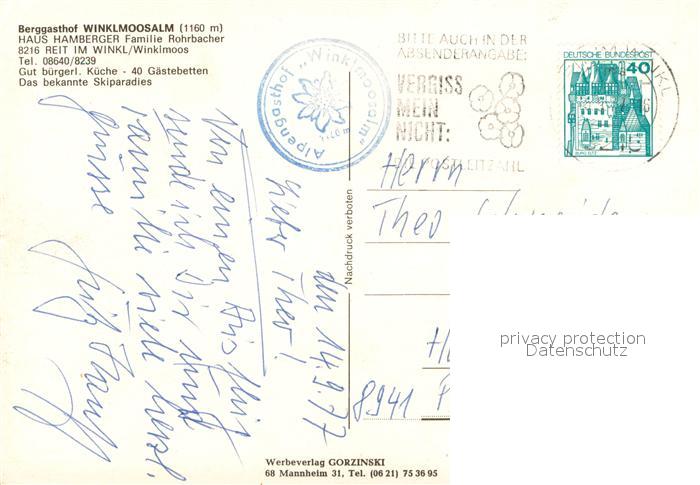 Berggasthof WINKLMOOSALM (1160 m)
HAUS HAMBERGER Familie Rohrbacher
8216 REIT IM WINKL/Winklmoos
Tel. 08640/8239
Gut bürgerl. Küche - 40 Gästebetten
Das bekannte Skiparadies
Alpengasthof „Winklmoosalm"
BITTE AUCH IN DER
ABSENDERANGABE:
VERGISS
MEIN
NICHT:
POSTLEITZAHL
DEUTSCHE BUNDESPOST
40
BURG ELTZ
den 14.9.77
Lieber Theo!
Von einem Ausflug
sende ich Dir und
viele herzl.
Grüsse
Fritz
Nachdruck verboten
Herrn
Theo
8941
privacy protection
Datenschutz
Werbeverlag GORZINSKI
68 Mannheim 31, Tel. (06 21) 75 36 95